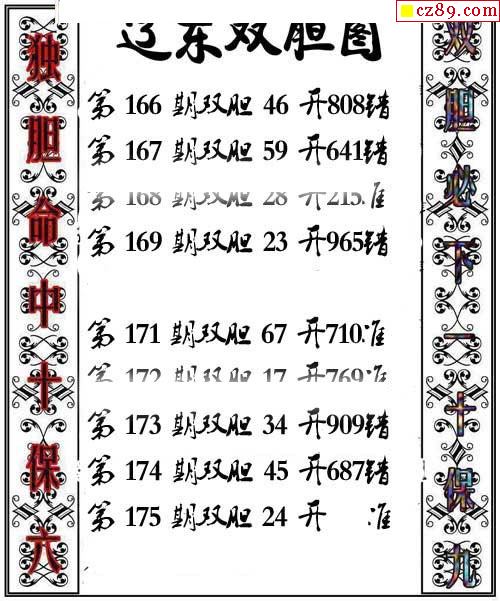 cz89.com
辽东双胆图
独胆命中十保六
第 166 期双胆 46 开808错
第 167 期双胆 59 开641错
第 168 期双胆 28 开215准
第 169 期双胆 23 开965错
第 171 期双胆 67 开710准
第 172 期双胆 17 开769准
第 173 期双胆 34 开909错
第 174 期双胆 45 开687错
第 175 期双胆 24 开 准
双胆必下一十保九